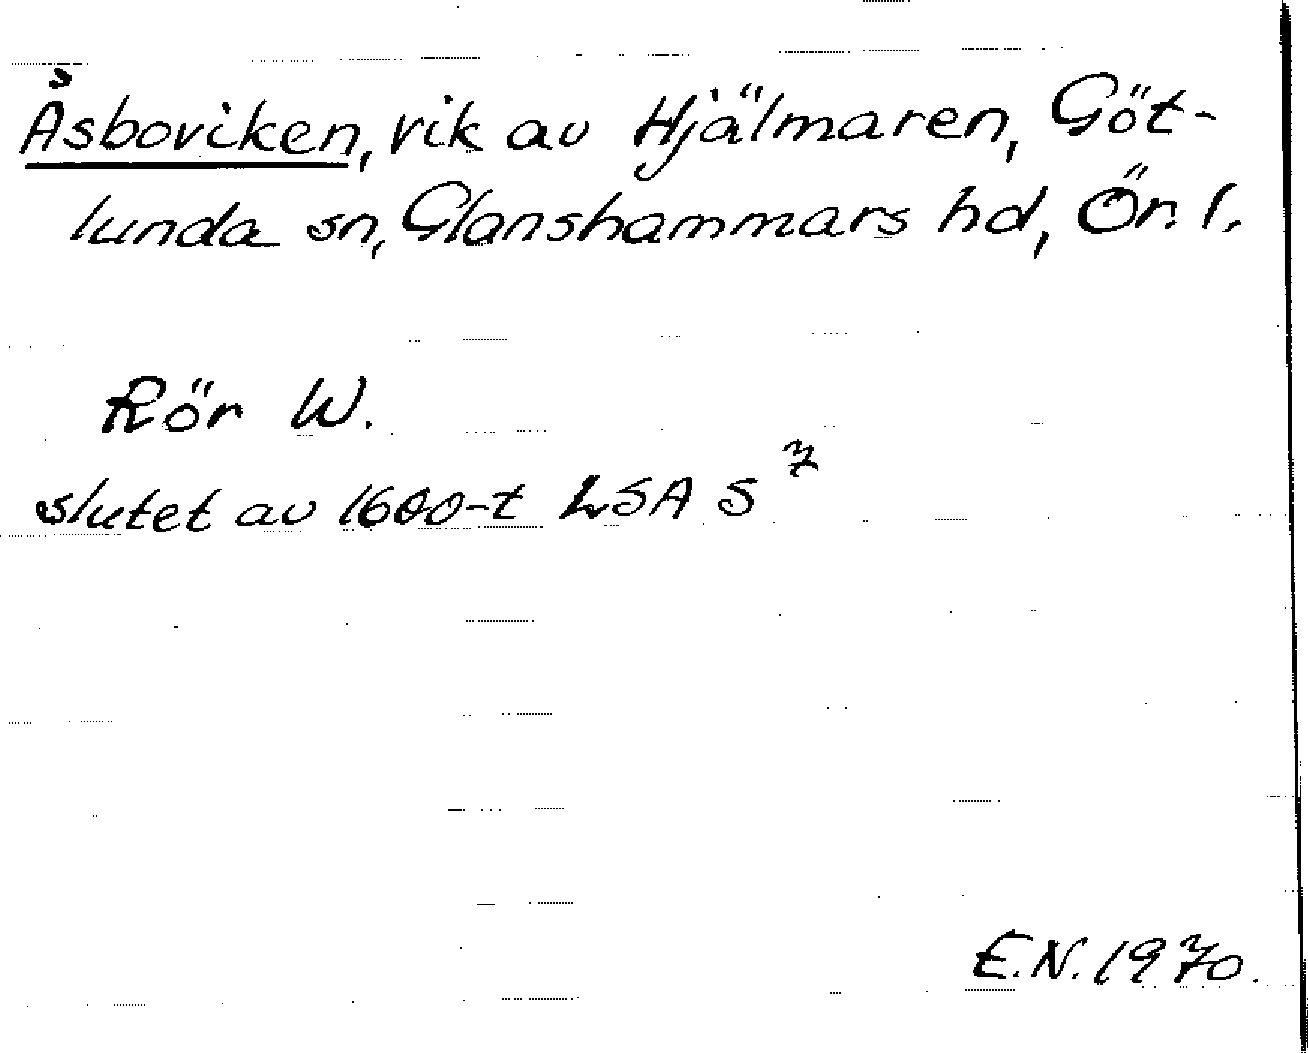 Åsboviken, vik av Hjälmaren, Göt-
lunda sn, Glanshammars hd, Ör. l.
Rör W.
slutet av 1600-t LSA S 7
E.N. 1970.